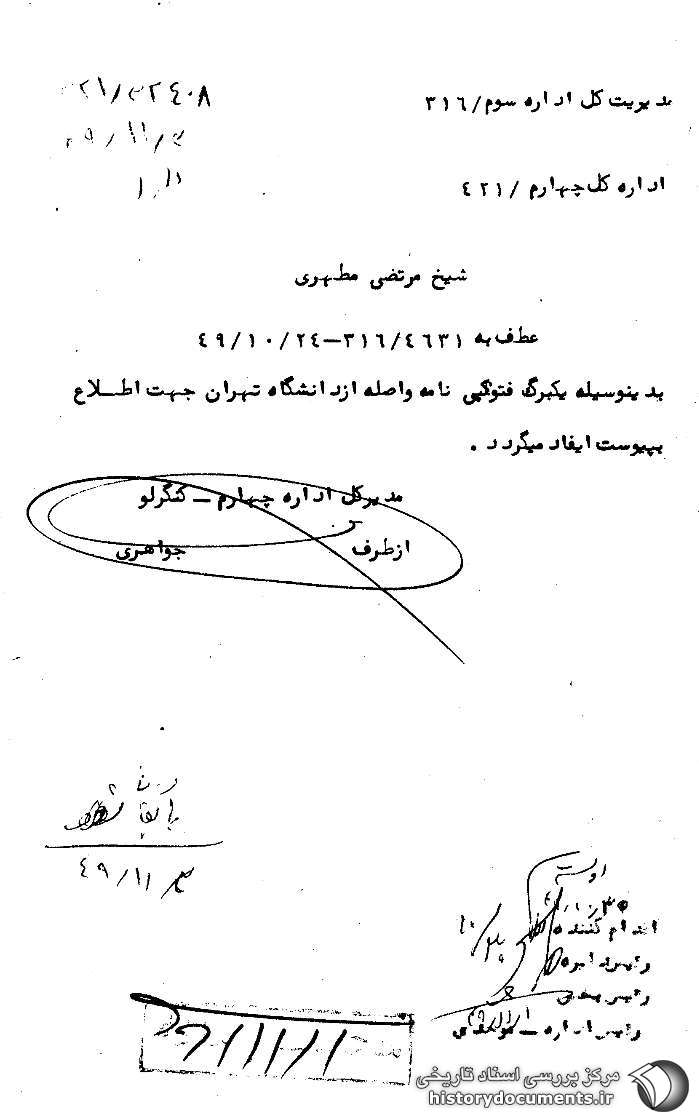 مدیریت کل اداره سوم/۳۱۶
۲۱/۳۲۴۰۸
اداره کل چهارم /۴۲۱
شیخ مرتضی مطهری
عطف به ۳۱۶/۴۶۳۱–۴۹/۱۰/۲۴
بدینوسیله یکبرگ فتوکپی نامه واصله ازدانشگاه تهران جهت اطلاع
بپیوست ایفاد میگردد .
مدیرکل اداره چهارم – کنگرلو
ازطرف جواهری
۴۹/۱۱/۳
اقدام کننده
رئیس دایره
رئیس بخش
رئیس اداره –
مرکز بررسی اسناد تاریخی
historydocuments.ir